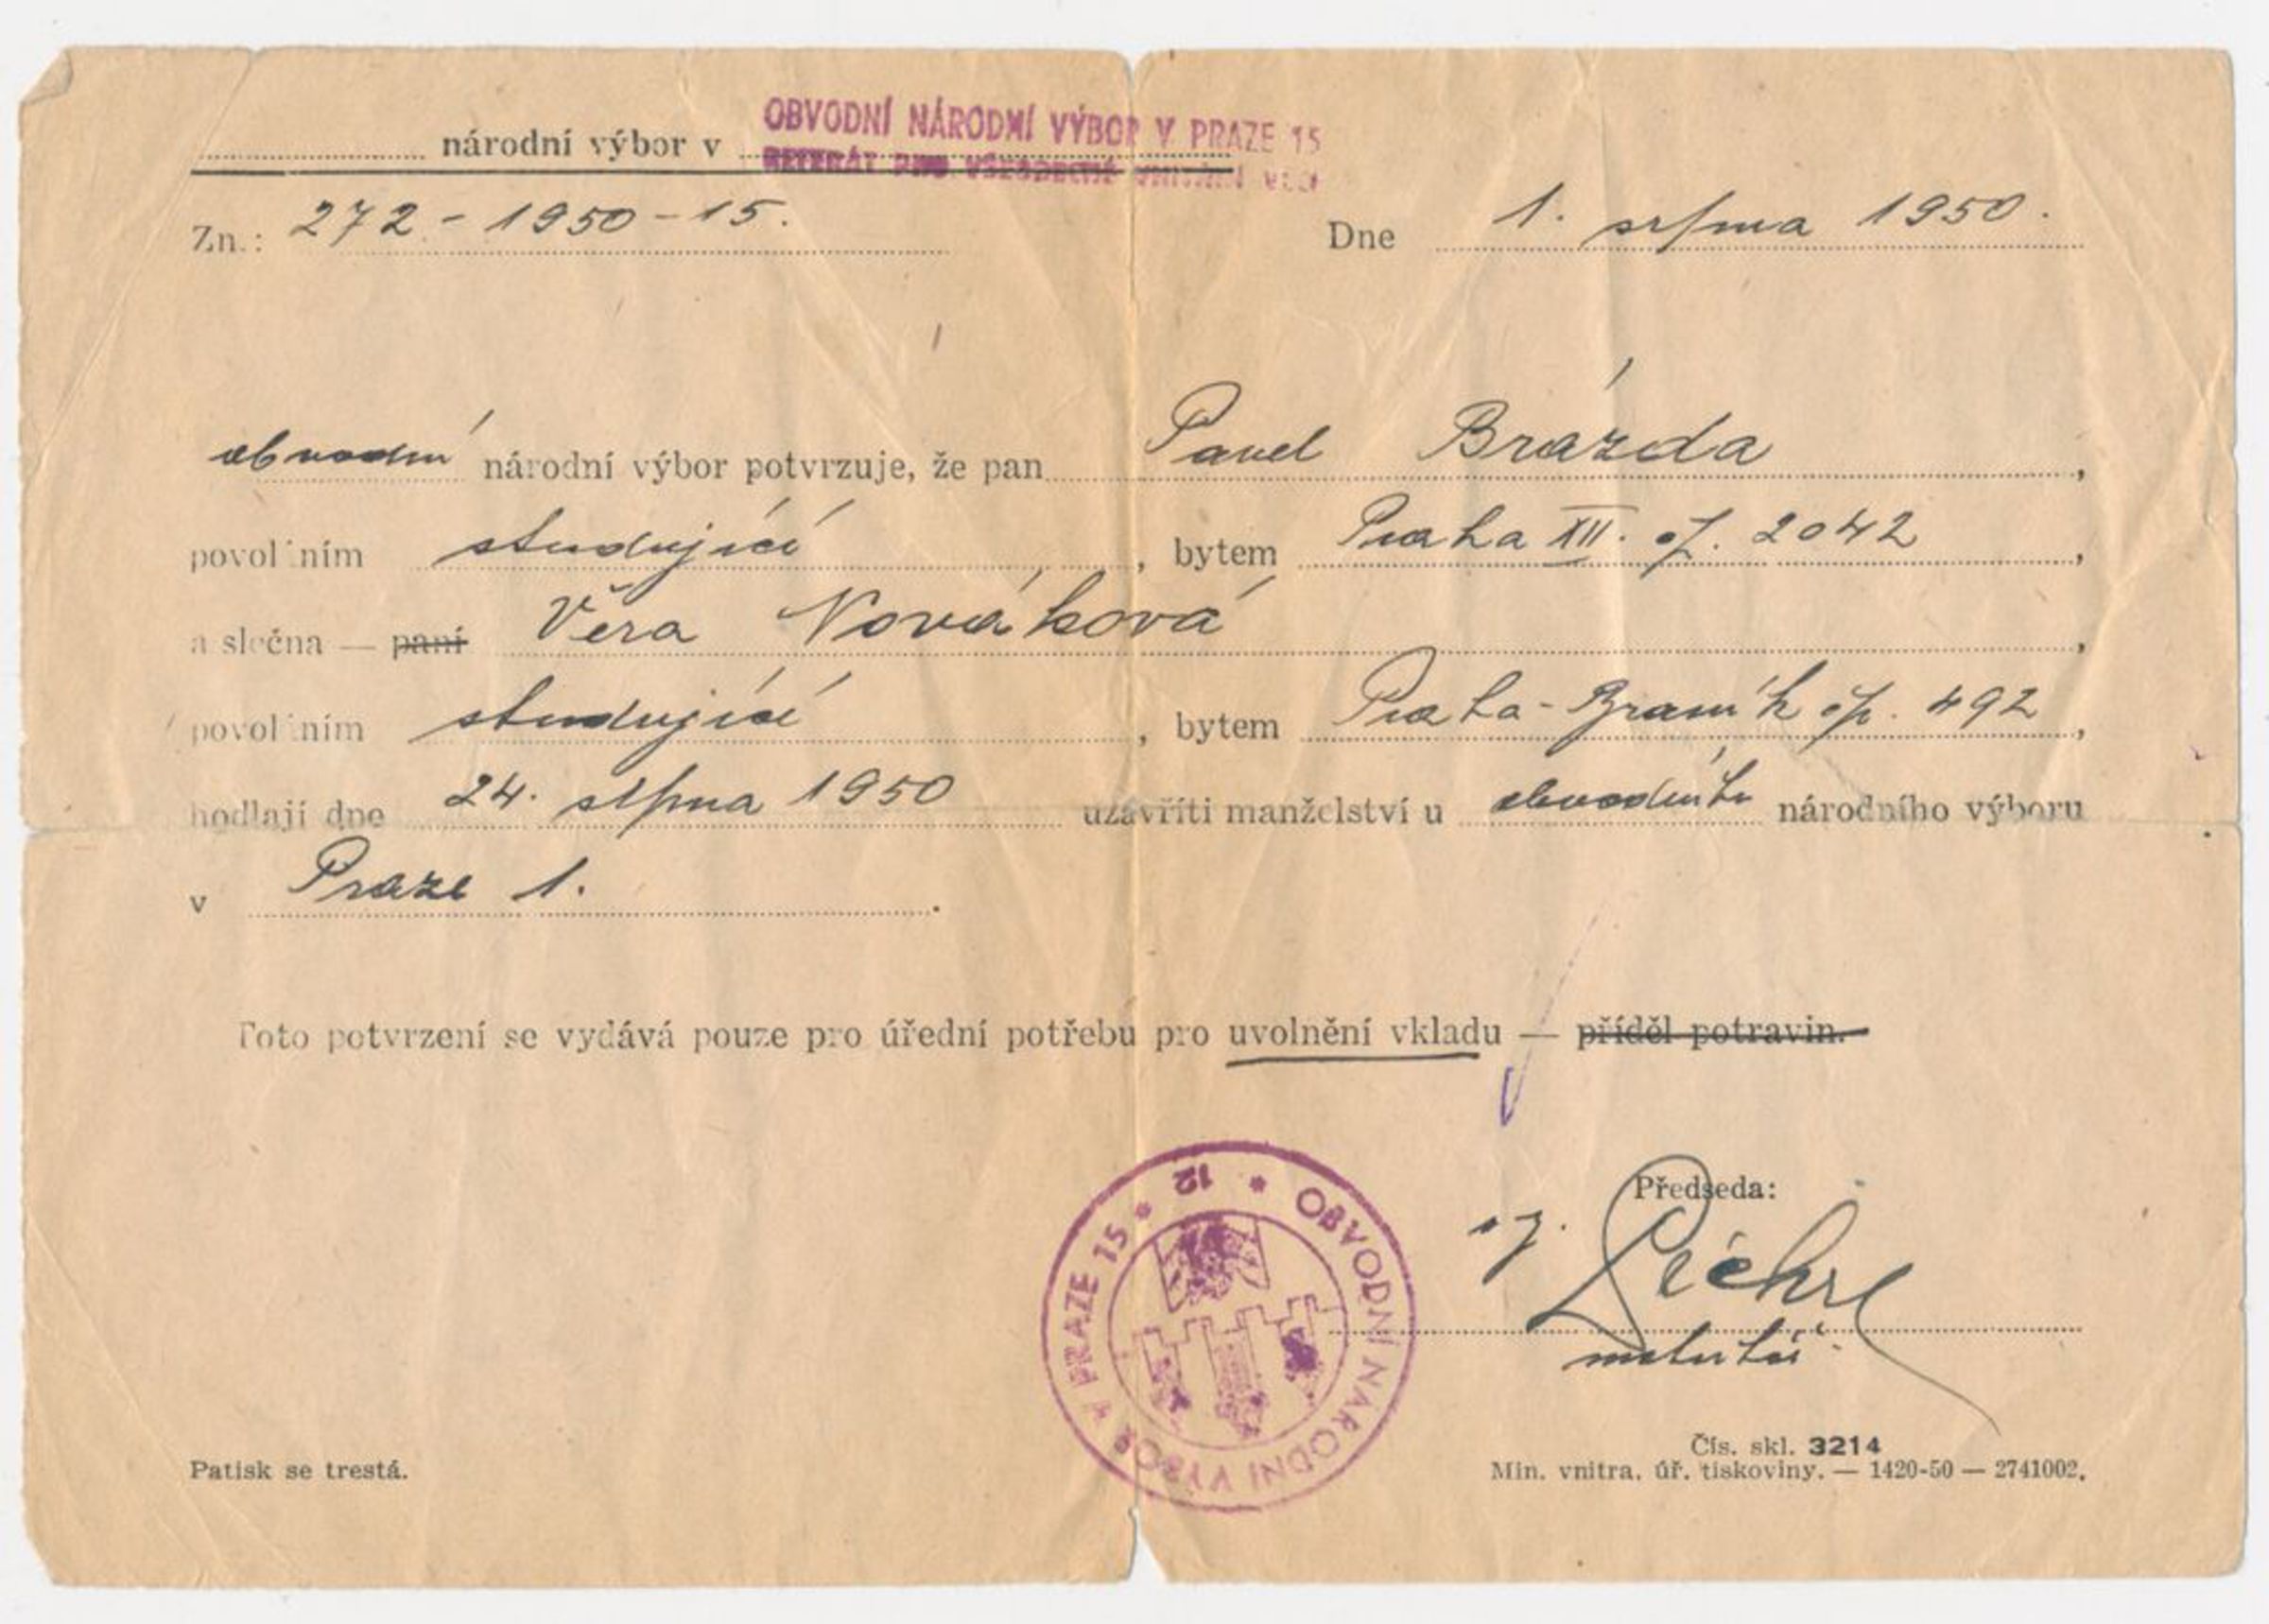 národní výbor v OBVODNÍ NÁRODNÍ VÝBOR V PRAZE 15
REFERÁT PRO VŠEOBECNÉ VNITŘNÍ VĚCI
Zn.: 272 - 1950 - 15. Dne 1. srpna 1950.
obvodní národní výbor potvrzuje, že pan Pavel Brázda,
povoláním studující, bytem Praha XII. čp. 2042,
a slečna — paní Věra Nováková,
povoláním studující, bytem Praha-Braník čp. 492,
hodlají dne 24. srpna 1950 uzavříti manželství u obvodního národního výboru
v Praze 1.
Toto potvrzení se vydává pouze pro úřední potřebu pro uvolnění vkladu — příděl potravin.
Předseda:
OBVODNÍ NÁRODNÍ VÝBOR V PRAZE 15 * 12 *
Čís. skl. 3214
Patisk se trestá. Min. vnitra, úř. tiskoviny. — 1420-50 — 2741002.